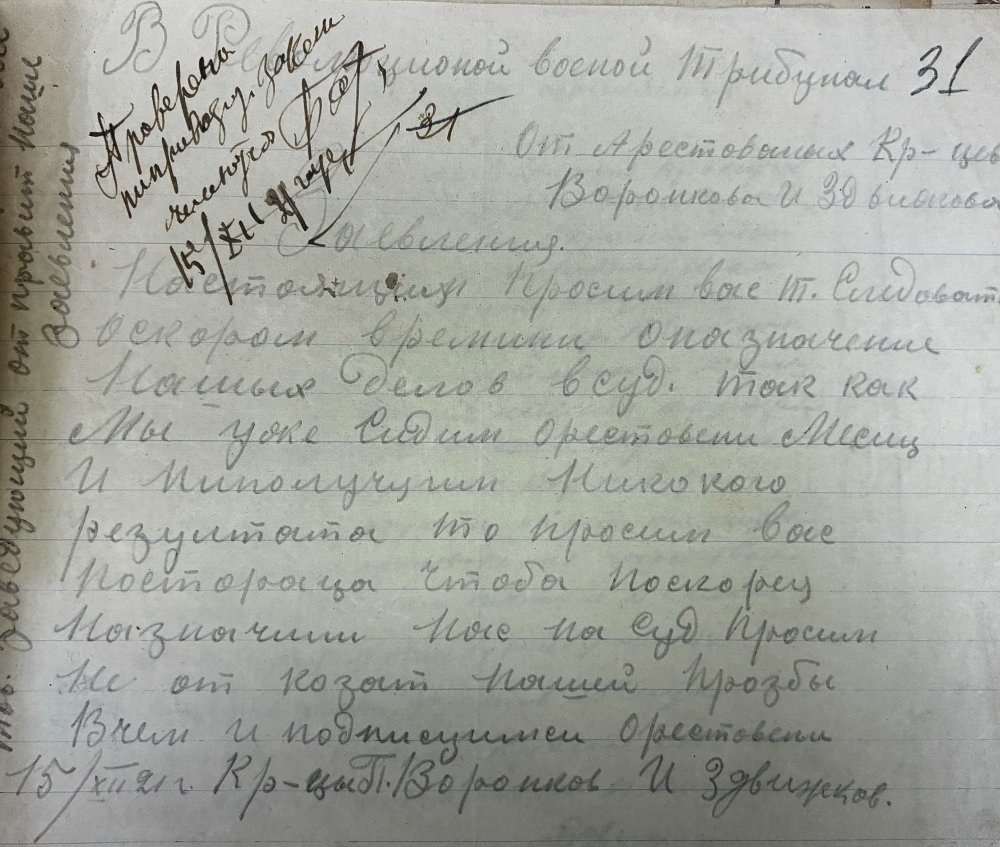 В Революционой военой Трибунал 31
Проверено
заявл
15/XII 21 года
31
От Арестованых Кр-цев
Воронкова И Здвижкова
Заевления.
Настоящим Просим вас т. Следоват
оскором времини оназначение
Нашых делов всуд. так как
Мы уже Сидим орестовени Месиц
И Ниполучим Никокого
резултата то просим вас
Постораца чтоба поскорец
Назначили нас на суд Просим
Не от козат нашей прозбы
Вчем и подписуимси орестовени
15/XII 21 г. Кр-цы П. Воронков И Здвижков.
Тов. Заведующий от правит наше
Заевления